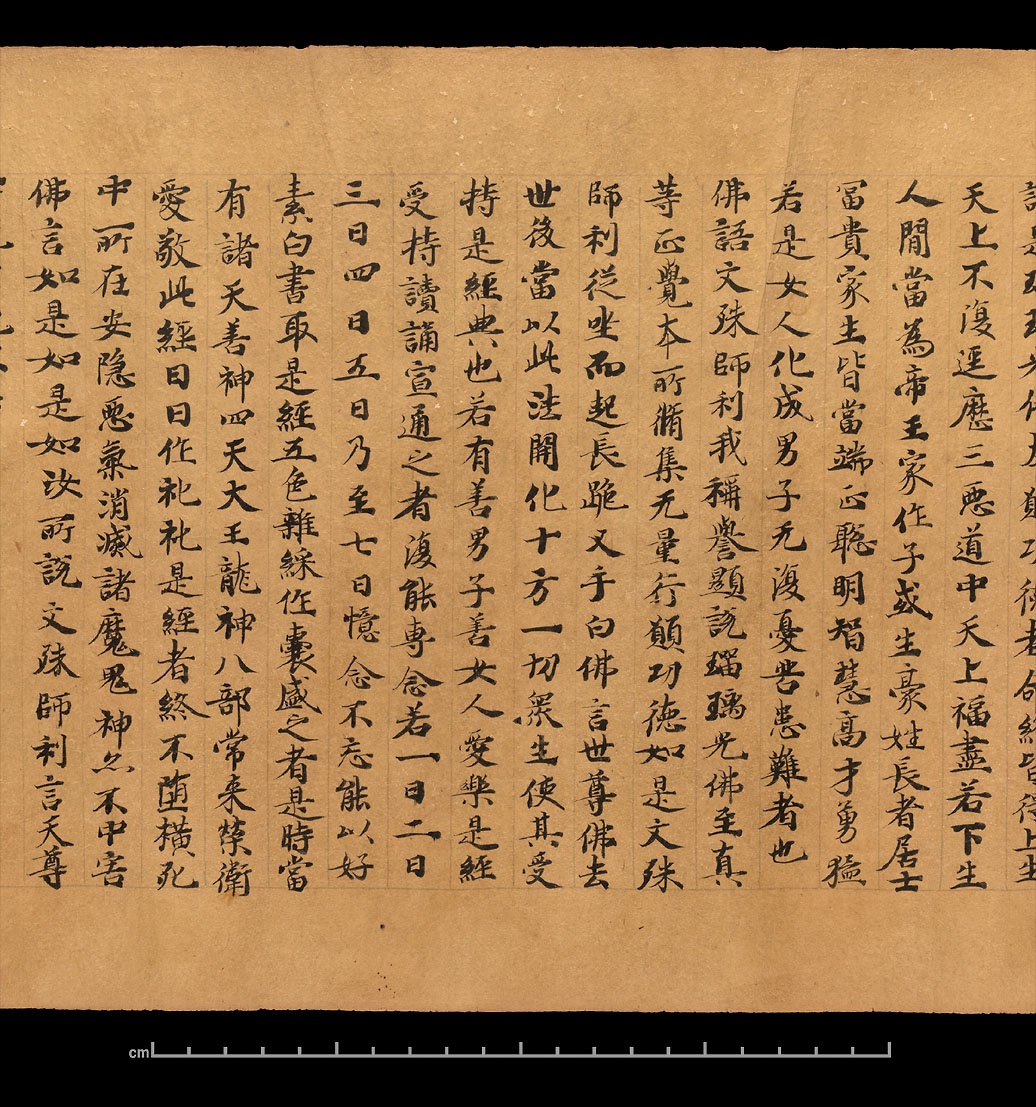 者命終皆得上生
天上不復逕歷三惡道中天上福盡若下生
人間當為帝王家作子或生豪姓長者居士
冨貴家生皆當端正聡明智慧高才勇猛
若是女人化成男子无復憂苦患難者也
佛語文殊師利我稱譽顯說瑠璃光佛至真
等正覺本所脩集无量行願功德如是文殊
師利從坐而起長跪叉手白佛言世尊佛去
世後當以此法開化十方一切眾生使其受
持是經典也若有善男子善女人愛樂是經
受持讀誦宣通之者復能専念若一日二日
三日四日五日乃至七日憶念不忘能以好
素白書取是經五色雜綵作囊盛之者是時當
有諸天善神四天大王龍神八部常来榮衛
愛敬此經日日作礼礼是經者終不堕橫死
中所在安隐惡氣消滅諸魔鬼神亦不中害
佛言如是如是如汝所說文殊師利言天尊
cm